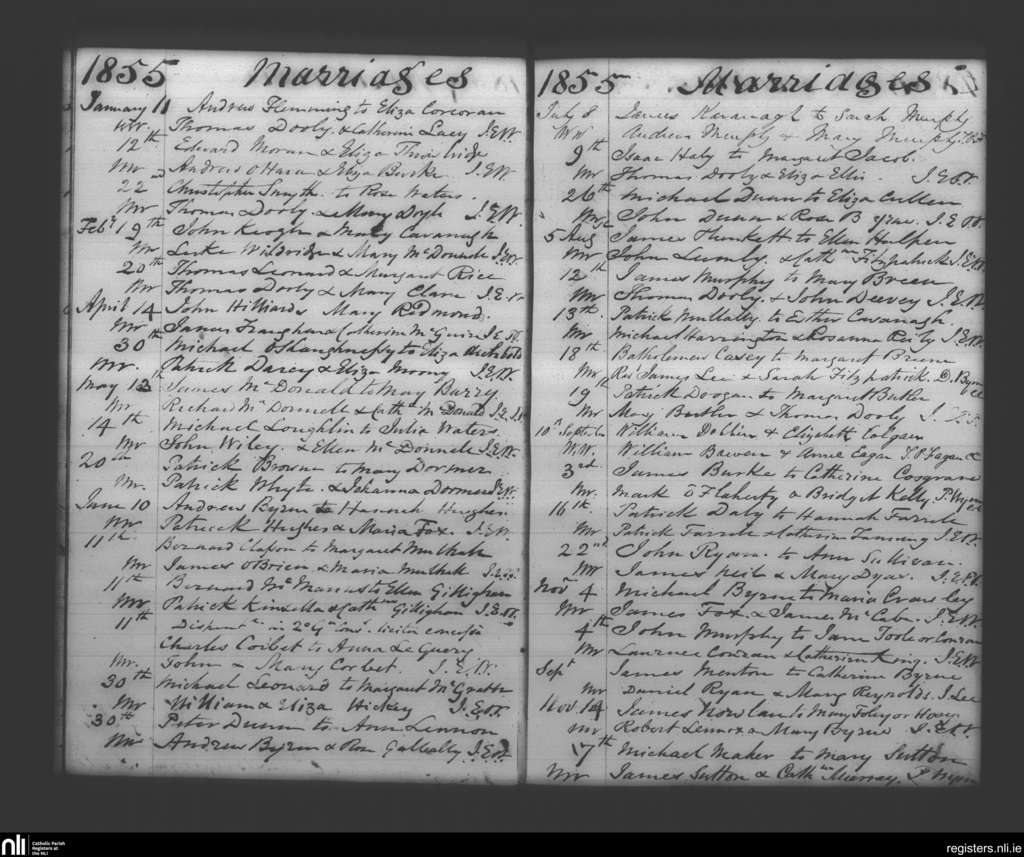 1855 Marriages
January 11 Andrew Flemming to Eliza Corcoran
Wr. Thomas Dooly & Catherin Lacy J.E.W.
12th Edward Moran & Eliza
Mr Andrew O'Hara & Eliza Burke J.E.W
22nd Christopher Smyth to Rose Waters
Mr Thomas Dooly & Mary Doyle J.E.W.
Feby 19th John Keogh & Mary Cavanagh
Mr Luke & Mary McDonnell J.W.
20th Thomas Leonard & Margaret Rice
Mr Thomas Dooly & Mary Clare J.E.
April 14 John Hilliard Mary Redmond.
Mr James & Catherine McGuire J.E.W.
30th Michael O'Shaughnessy to Eliza
Mr. Patrick Darcy & Eliza J.E.W.
May 12th James McDonald to May Barry
Mr Richard McDonnell & Cathe McDonald
14th Michael Loughlin to Julia Waters
Mr John Wiley & Ellen McDonnell J.E.W.
20th Patrick Brown to Mary Dormer
Mr. Patrick Whyte & Johanna Dormer J.E.W.
June 10 Andrew Byrne to Hannah Hughes
Mr Patrick Hughes & Maria Fox J.E.W.
11th Bernard to Margaret Mulhall
Mr James O'Brien & Maria Mulhall
11th Bernard McManus to Ellen Gilligham
Mr Patrick Kinsella & Cathne Gilligham J.E.W.
11th in 2o
Charles Corbet to Anna Le Guery
Mr. John & Mary Corbet. J.E.W.
30th Michael Leonard to Margaret McGrath
Mr William & Eliza Hickey J.E.W.
30th Peter Dunn to Ann Lennon
Mr Andrew Byrne & Rose J.E.W.
1855 Marriages
July 8 James Kavanagh to Sarah Murphy
W.W. Andrew Murphy & Mary Murphy
9th Isaac Haly to Margaret Jacob.
Mr Thomas Dooly & Eliza Ellis. J.E.W.
26th Michael Duan to Eliza Cullen
Mr John Dunn & Rose Byrne J.E.W.
5 Aug James Plunkett to Ellen Halpen
Mr John & Cathne Fitzpatrick J.E.W.
12th James Murphy to Mary Breen
Mr Thomas Dooly & John Deevey J.E.W.
13th. Patrick Mullally to Esther Cavanagh.
Mr Michael Harrington & Rosanna Reily J.E.W.
18th Batholemew Casey to Margaret
Mr Revd James Lee & Sarah Fitzpatrick D. Byrne
19th Patrick Doogan to Margaret Butler
Mr Mary Butler & Thomas Dooly
10th September William & Elizabeth Colgan
W.W. William & Anne Eagan
3rd James Burke to Catherine Cosgrave
Mr. Mark O'Flaherty & Bridget Kelly
16th Patrick Daly to Hannah Farrell
Mr Patrick Farrell & Catherine J.E.W.
22nd John Ryan to Ann Sullivan.
Mr James Neil & Mary Dyas. J.E.W.
Novr 4 Michael Byrne to Maria Crawley
Mr James Fox & James McCabe. J.E.W.
4th John Murphy to Jane Toole or Conran
Mr Laurence Conran & Catherine King. J.E.W
Sept James Menton to Catherine Byrne
Mr Daniel Ryan & Mary Reynolds. J. Lee
Nov. 14 James Nowlan to Mary Foley or Hoey
Mr Robert Lennox & Mary Byrne
17th Michael Maher to Mary Sutton
Mr James Sutton & Cathne Murray
nli
Catholic Parish
Registers at
the NLI
registers.nli.ie